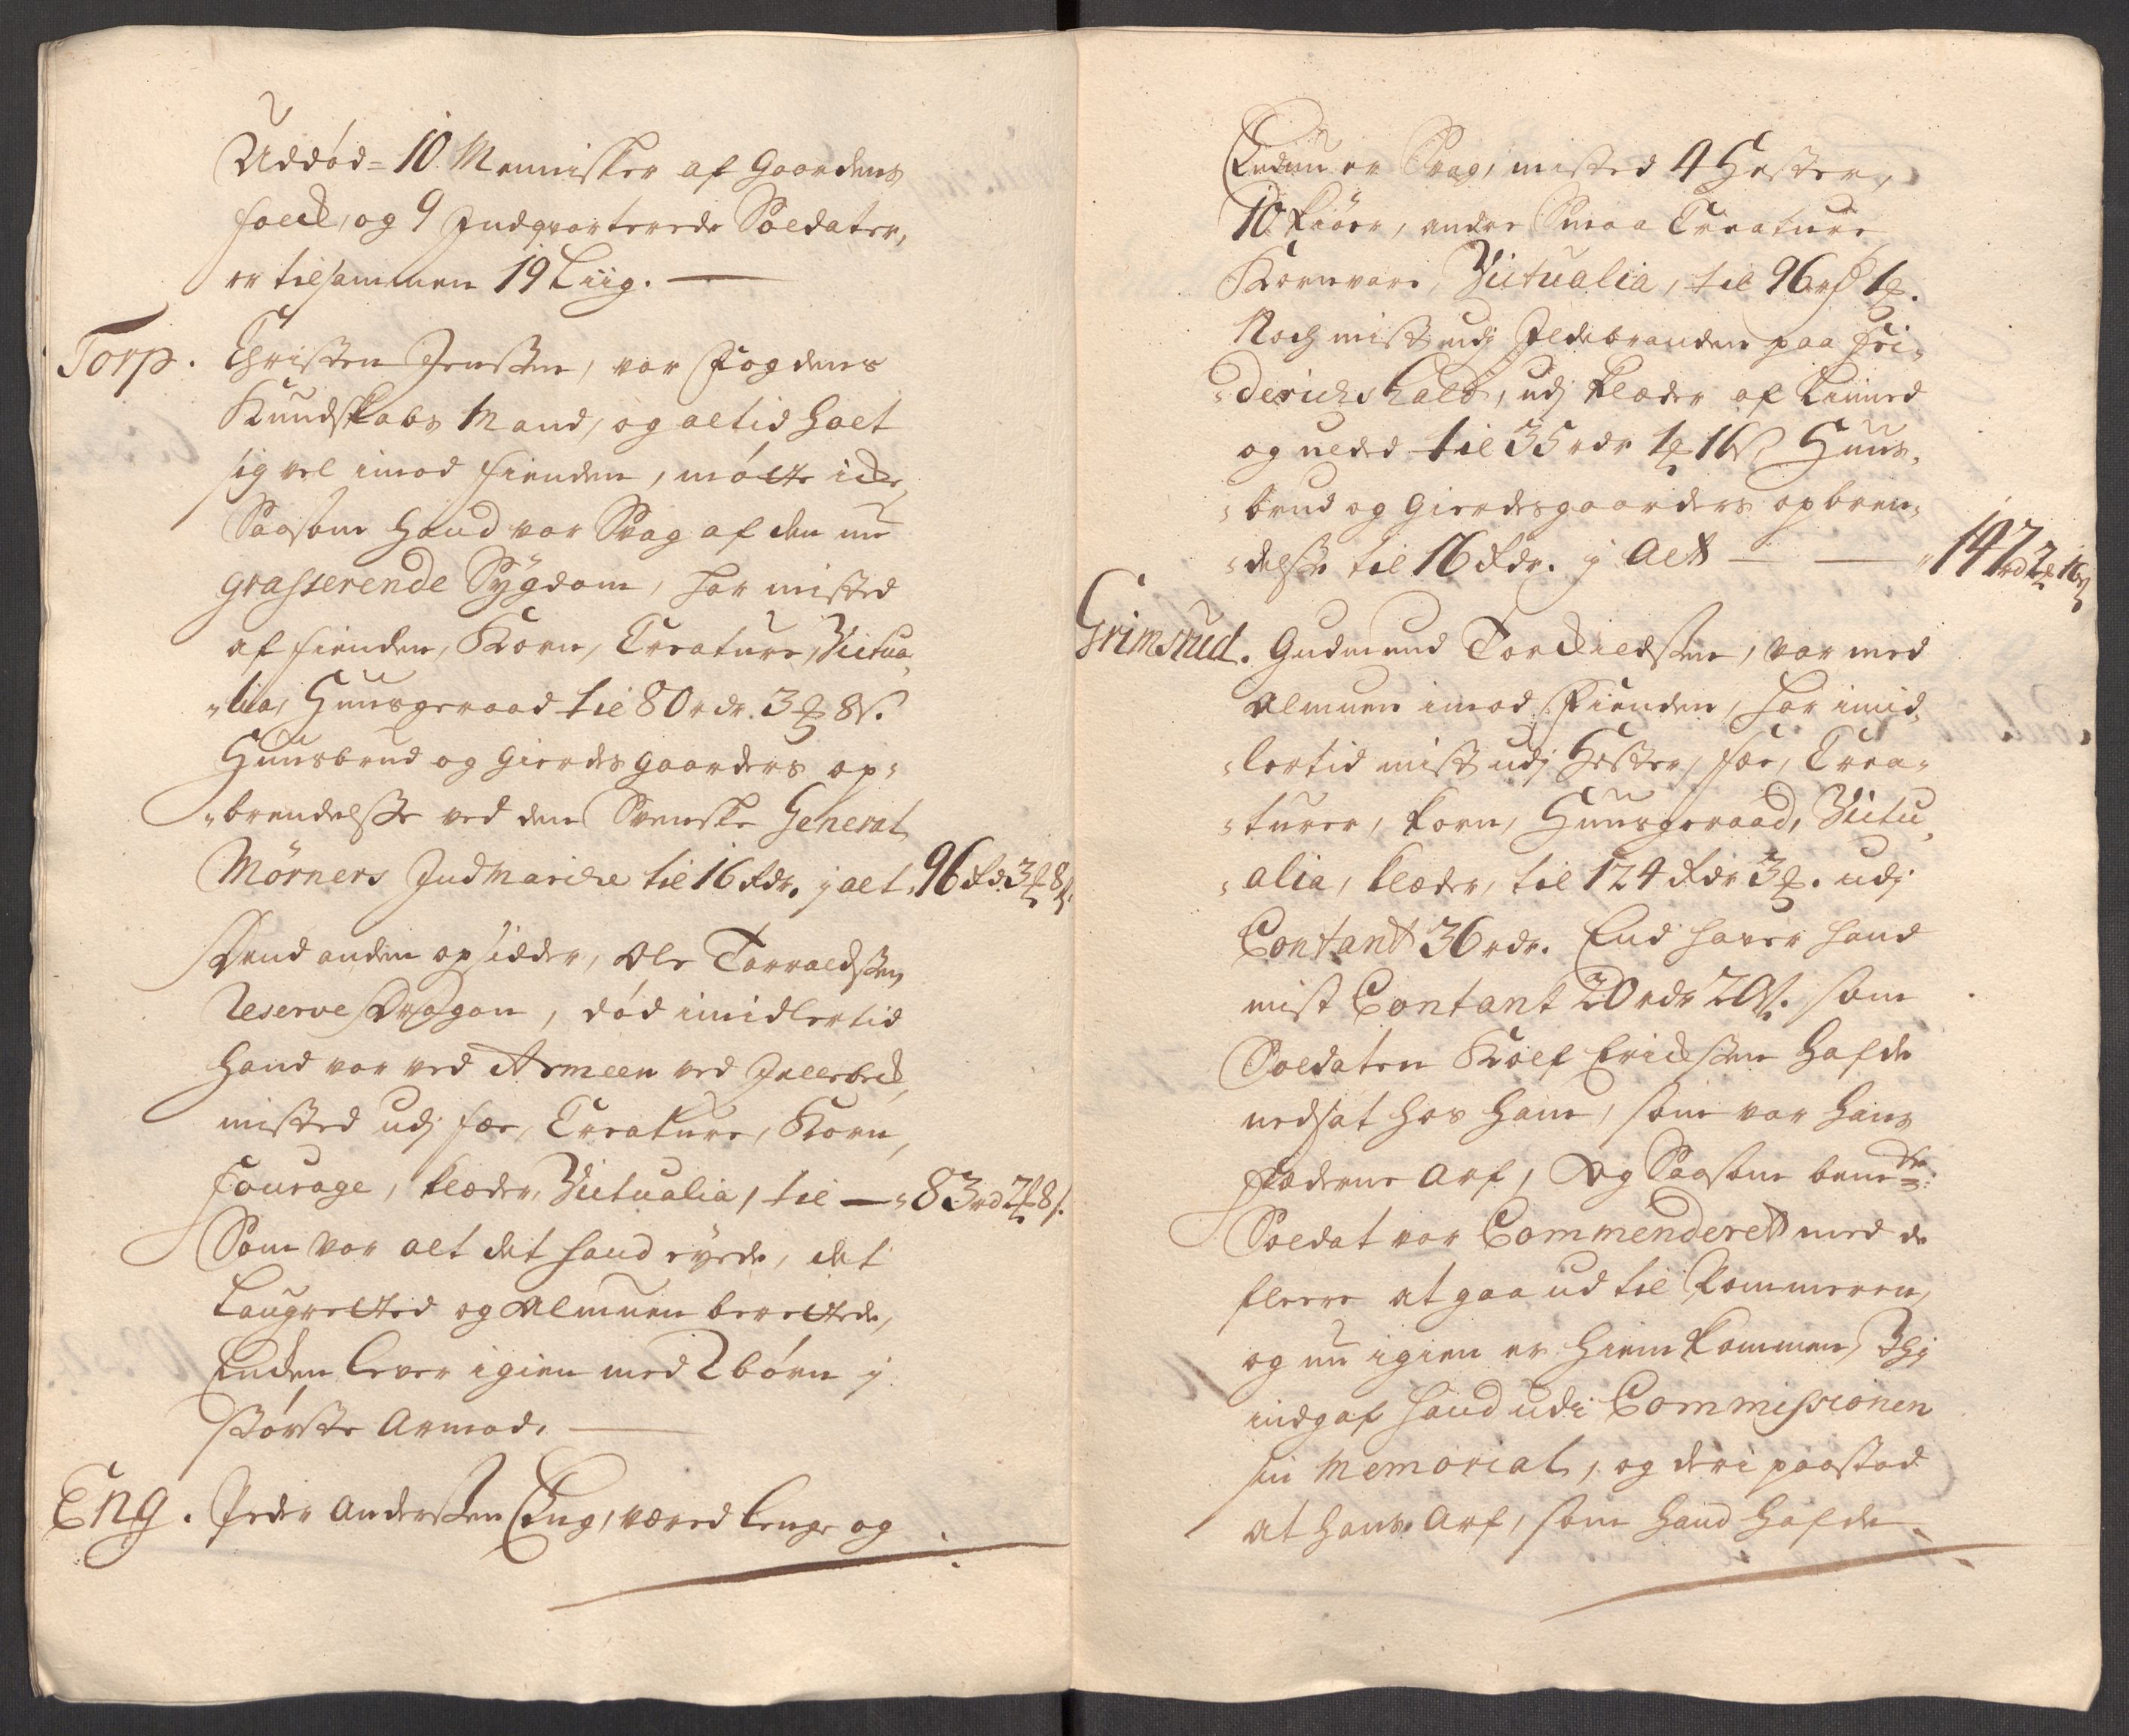 Uddød = 10. Mennisker af Gaardens
folck, og 9 Indqvarterede Soldater,
er tilsammen 19 Liig. —
Torp. Christen Jenssen, var Fogdens
Kundskabs Mand, og altid holt
sig vel imod fienden, mötte icke,
Saasom hand var Svag af den nu
grasserende Sygdom, har misted
af fienden, Korn, Creature, Victua-
lia, Huusgeraad til 80 rdr. 3 ₰ 8 s.
Huusbrud og gierdes gaarders op-
brendelsse ved den Svenske General
Mörners Indmarche til 16 Rdr. j alt. 96 Rdr 3 ₰ 8 s.
Dend anden opsidder, Ole Torvaldsen,
Reserve Dragon, död imidlertid
hand var ved Armeen ved
misted udj fæe, Creature, Korn,
fourage, klæder, Victualia, til — 83 rd 2 ₰ 8 s.
Som var alt det hand eyede, det
Laugretted og Almuen berettede,
Encken lever igien med 2 börn j
störste Armod. —
Eng. Peder Anderssen Eng, været lenge og
Endnu er Svag, misted 4 Hester,
10 kiöer, andre Smaa Creature
Kornvare, Victualia, til 96 rd 1 ₰.
Noch mist udj Ildebranden paa Fri-
derichshald, udj klæder af Linned
og ulded til 35 rdr 1 ₰ 16 s Huus-
brud og Gierdesgaarders opbren-
delsse til 16 Rdr. j Alt — — 147 rd 2 ₰ 16 s
Grimsrud. Gudmund Torckildssen, var med
Almuen imod Fienden, har imid-
lertid mist udj Hester, fæe, Crea-
turer, korn, Huusgeraad, Victu-
alia, klæder, til 124 Rdr 3 ₰. udj
Contant 36 rdr. End haver hand
mist Contant 20 rdr 20 s. som
Soldaten Rolf Erickssen hafde
nedsat hos ham, som var hans
Fæderne Arf, Og Saasom bemte:
Soldat var Commenderet med de
fleere at gaa ud til Pommeren,
og nu igien er hiem kommen,
indgaf hand udi Commissionen
sin Memorial, og deri paastod
at hans Arf, som hand hafde